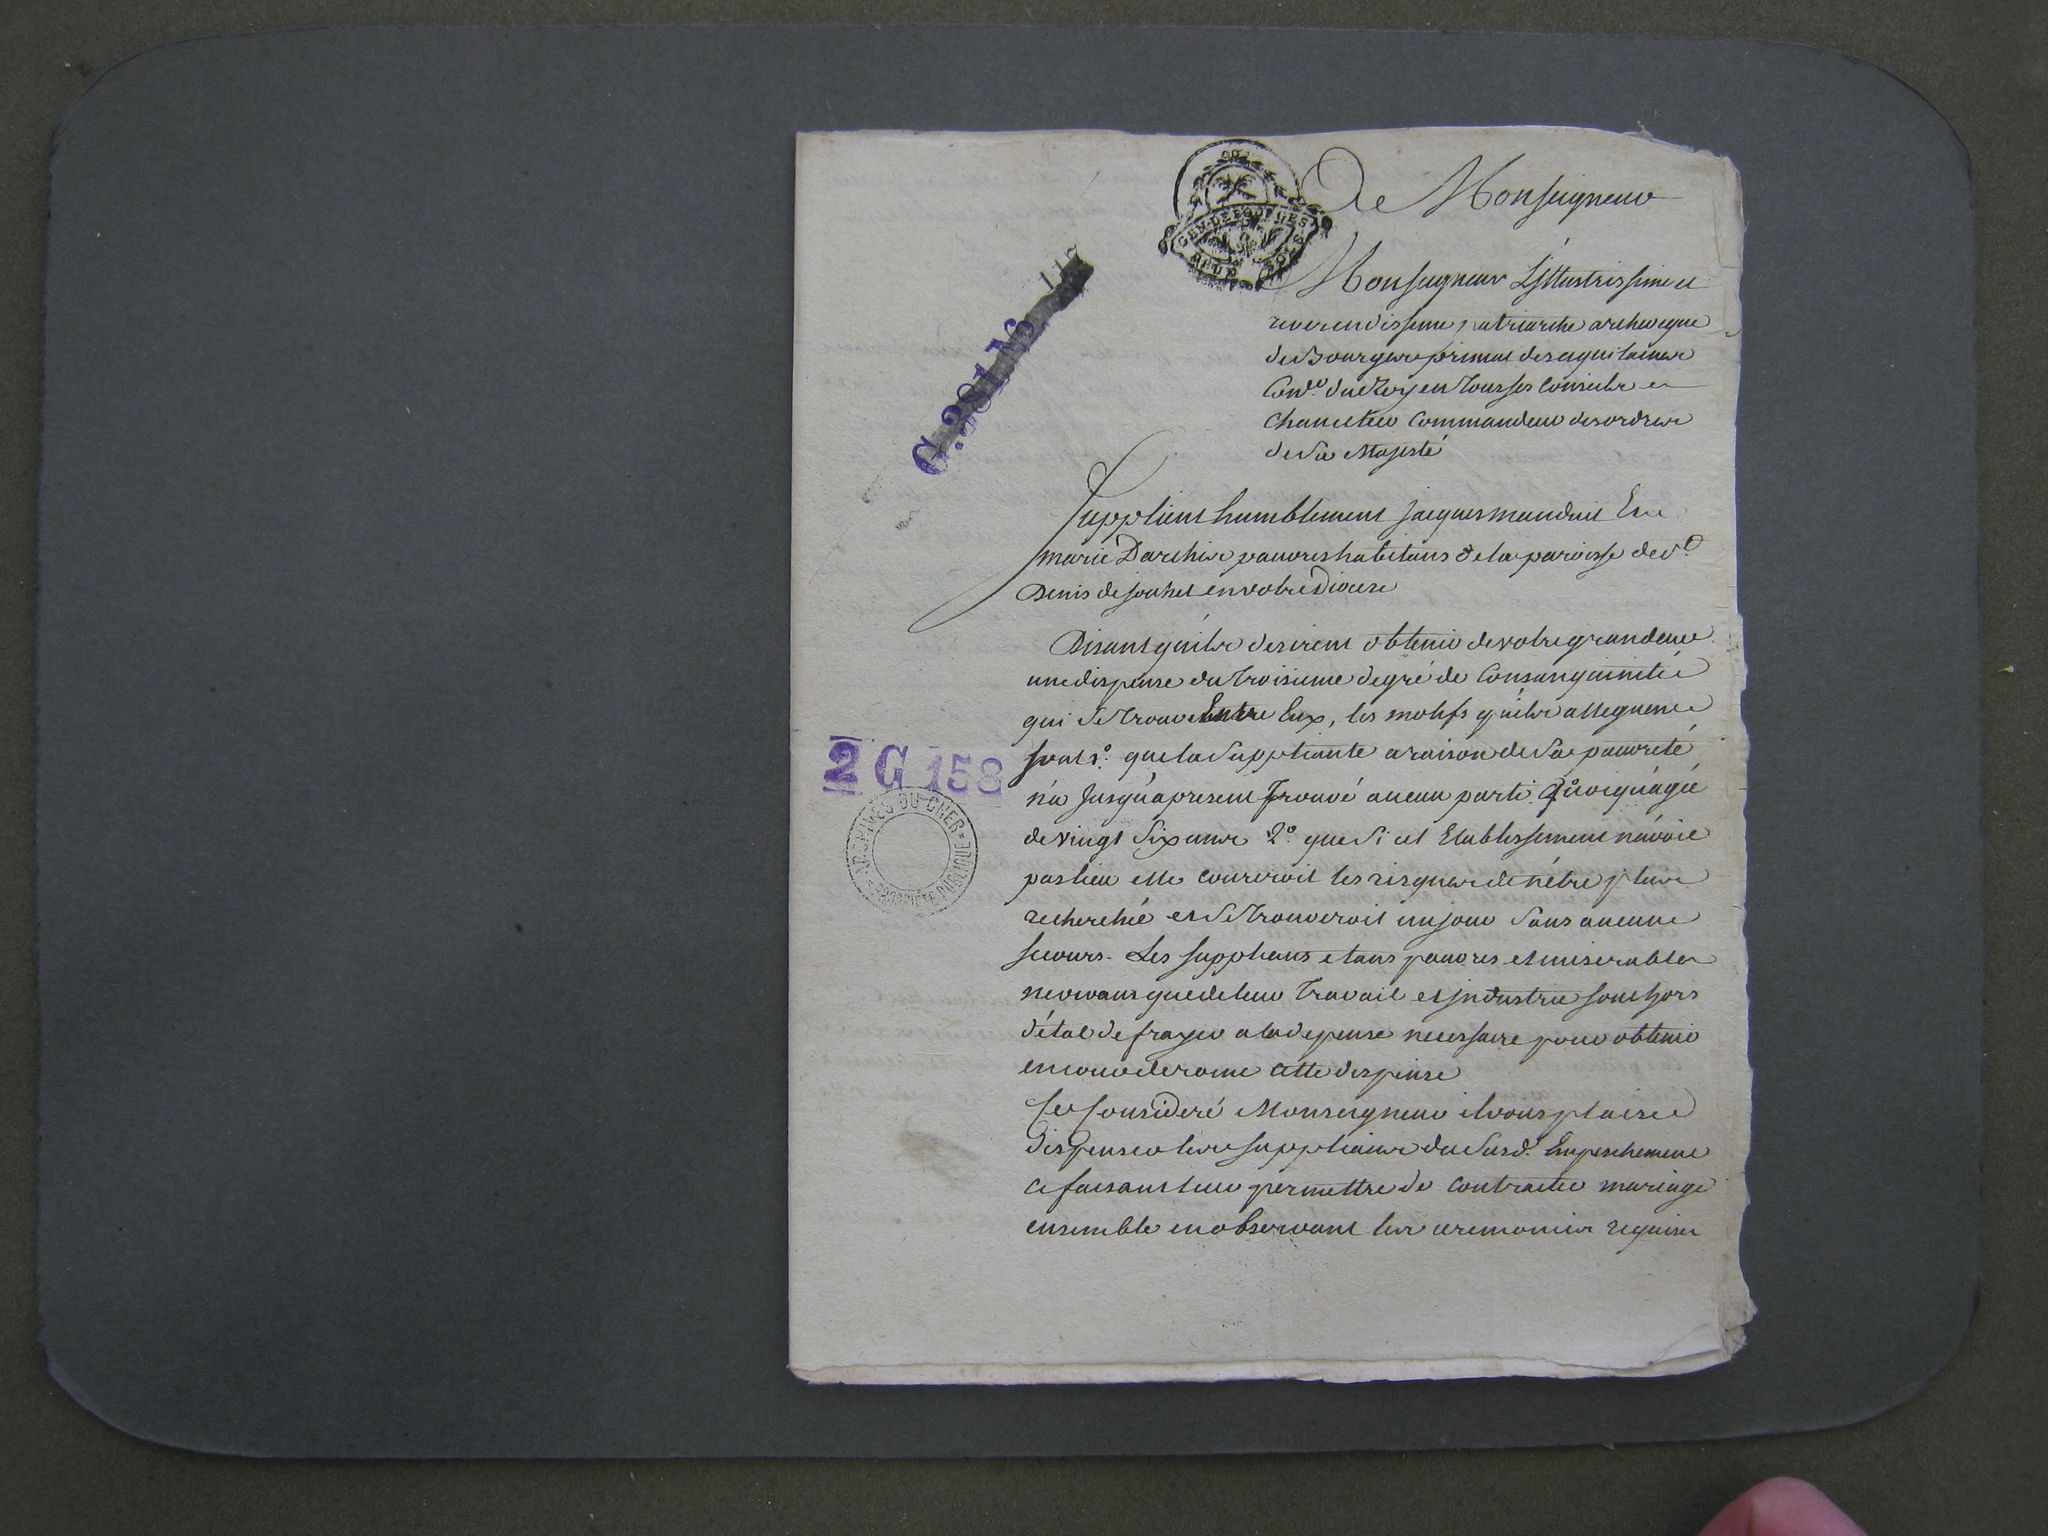 De Monseigneur
GEN. DE BOURGES
Monseigneur L'Jllustrissime et
reverendissime patriarche archeveque
de Bourges primat des aquitaines
Cons.er du Roy en tous ses Conseils et
chancelier Commandeur des ordres
de Sa Majesté
G. 2
2 G 158
ARCHIVES DU CHER
PROPRIÉTÉ PUBLIQUE
Supplient humblement jacques mauduit Et
marie Darchis pauvres habitans de la paroisse de St
Denis de jouhet en votre Diocese
Disant qu'ils desirent obtenir de votre grandeur
une dispense du troisieme degré de Consanguinité
qui Se trouve Entre Eux, les motifs qu'ils alleguent
sont 1.° que la Suppliante a raison de Sa pauvreté
n'a Jusqu'a present trouvé aucun parti quoiqu'agée
de vingt Six ans 2.° que Si cet Etablissement n'avoit
pas lieu elle coureroit les risques de n'être plus
recherchée et Se trouveroit un jour Sans aucun
secours. Les Supplians etans pauvres et miserables
ne vivans que de leur travail et Jndustrie sont hors
d'état de frayer a la depense necessaire pour obtenir
en cour de rome cette dispense
Ce Consideré Monseigneur il vous plaise
Dispenser les supplians du Susd. Empeschement
ce faisant leur permettre de contracter mariage
ensemble en observant les ceremonies requises